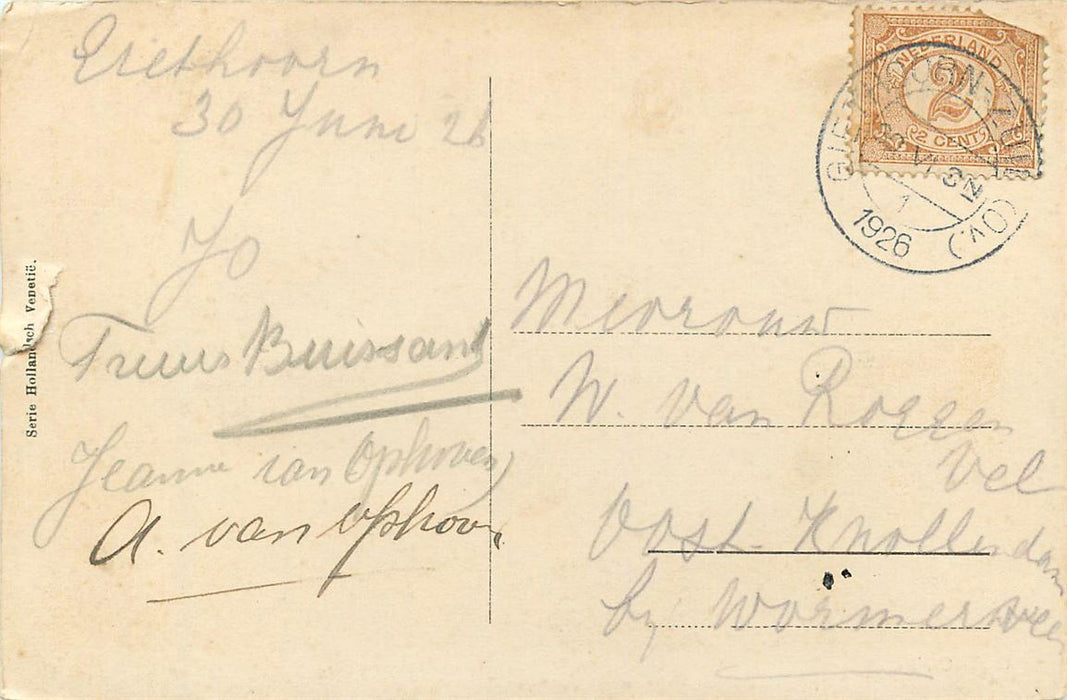 Giethoorn
30 Juni 26
Jo
Truus Buissant
Jeanne van Ophoven
A. van Ophoven
Serie Hollandsch Venetië.
NEDERLAND
2
2 CENT
GIETHOORN-ZUID (OV.)
30 VI 3 N
1
1926
Mevrouw
W. van Roggen
Vel
Oost-Knollendam
bij Wormerveer